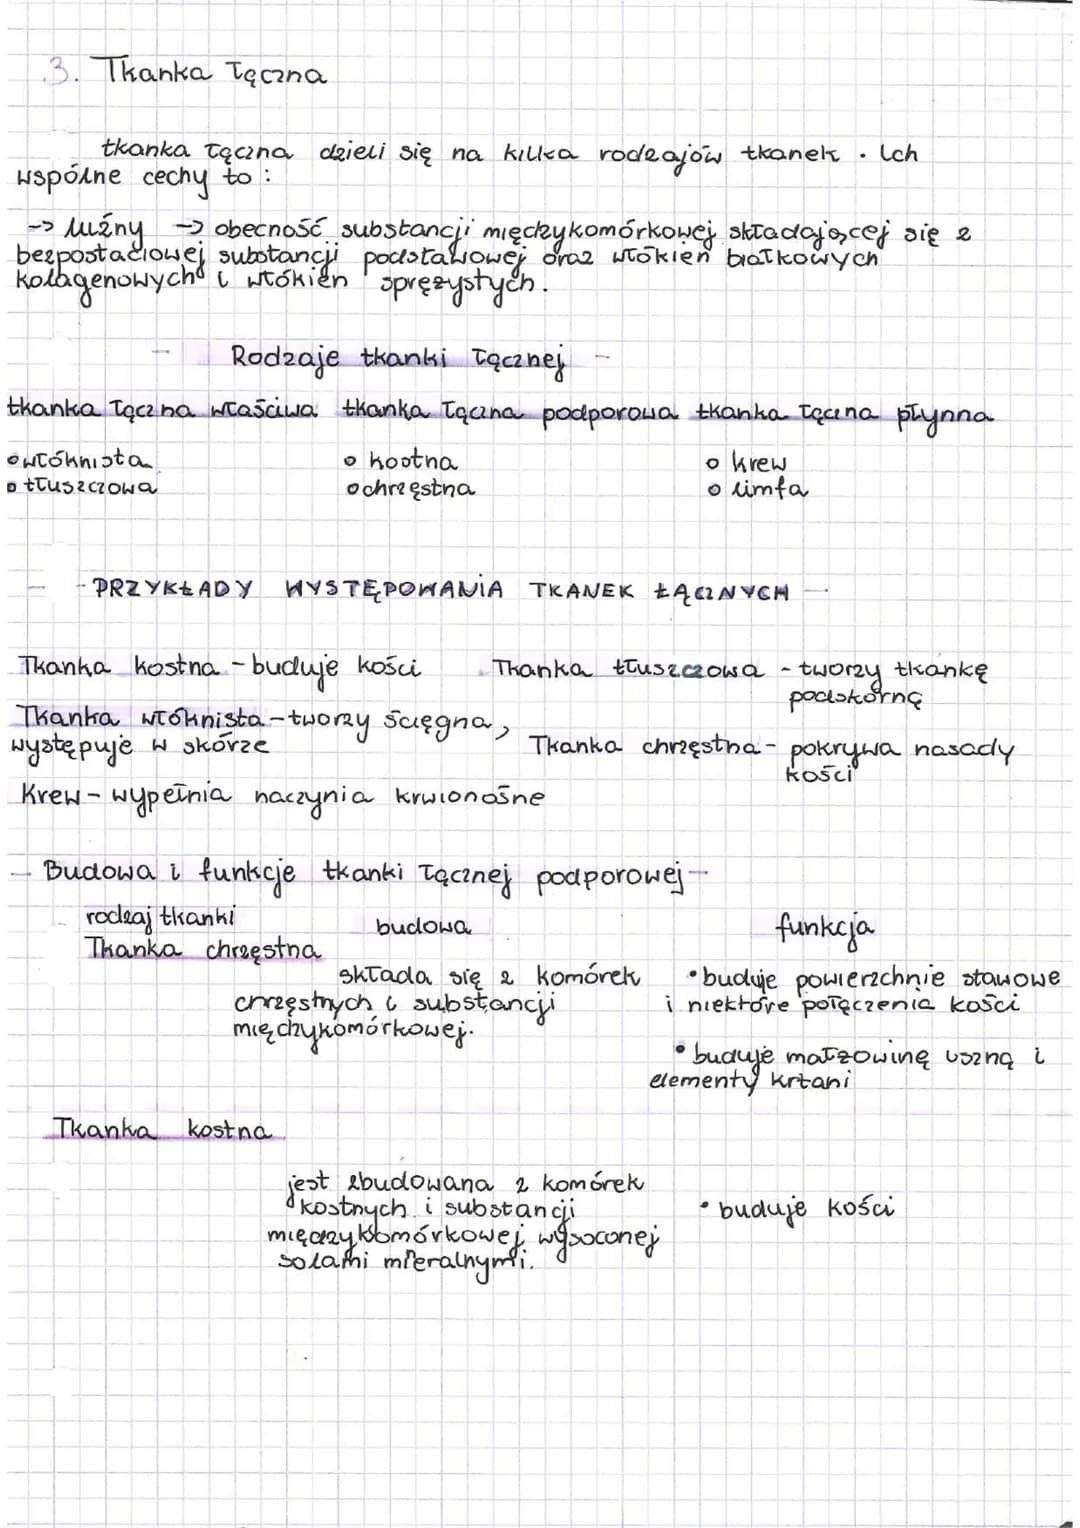 3. Tkanka łączna
tkanka łączna dzieli się na kilka rodzajów tkanek. Ich
wspólne cechy to:
-> luźny -> obecność substancji międzykomórkowej składającej się z
bezpostaciowej substancji podstawowej oraz włókien białkowych
kolagenowych i włókien sprężystych.
- Rodzaje tkanki łącznej -
tkanka łączna właściwa tkanka łączna podporowa tkanka łączna płynna
o włóknista o kostna o krew
o tłuszczowa o chrzęstna o limfa
- - PRZYKŁADY WYSTĘPOWANIA TKANEK ŁĄCZNYCH -
Tkanka kostna - buduje kości Tkanka tłuszczowa - tworzy tkankę
podskórną
Tkanka włóknista - tworzy ścięgna,
występuje w skórze Tkanka chrzęstna - pokrywa nasady
kości
Krew - wypełnia naczynia krwionośne
- Budowa i funkcje tkanki łącznej podporowej -
rodzaj tkanki budowa funkcja
Tkanka chrzęstna
składa się z komórek • buduje powierzchnie stawowe
chrzęstnych i substancji i niektóre połączenia kości
międzykomórkowej.
• buduje małżowinę uszną i
elementy krtani
Tkanka kostna
jest zbudowana z komórek
kostnych i substancji • buduje kości
międzykomórkowej wysoconej
solami mieralnymi.